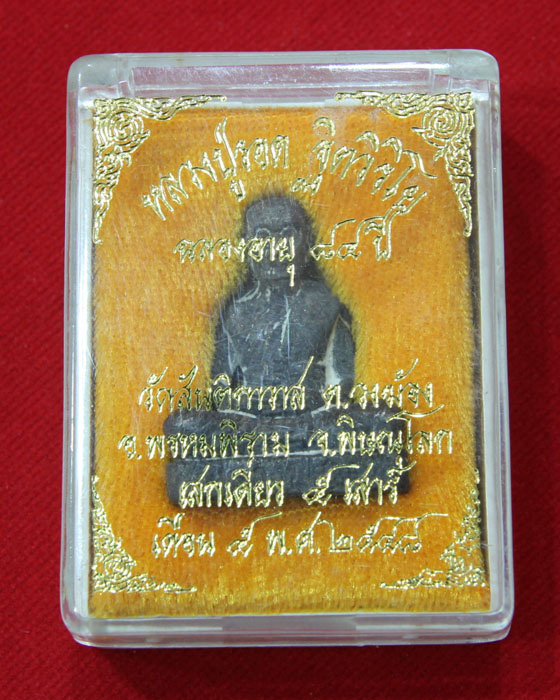 หลวงปู่รอด ฐิตวิริโย
ฉลองอายุ ๘๔ ปี
วัดสันติกาวาส ต.วงฆ้อง
อ.พรหมพิราม จ.พิษณุโลก
เสกเดียว ๕ เสาร์
เดือน ๕ พ.ศ.๒๕๔๘